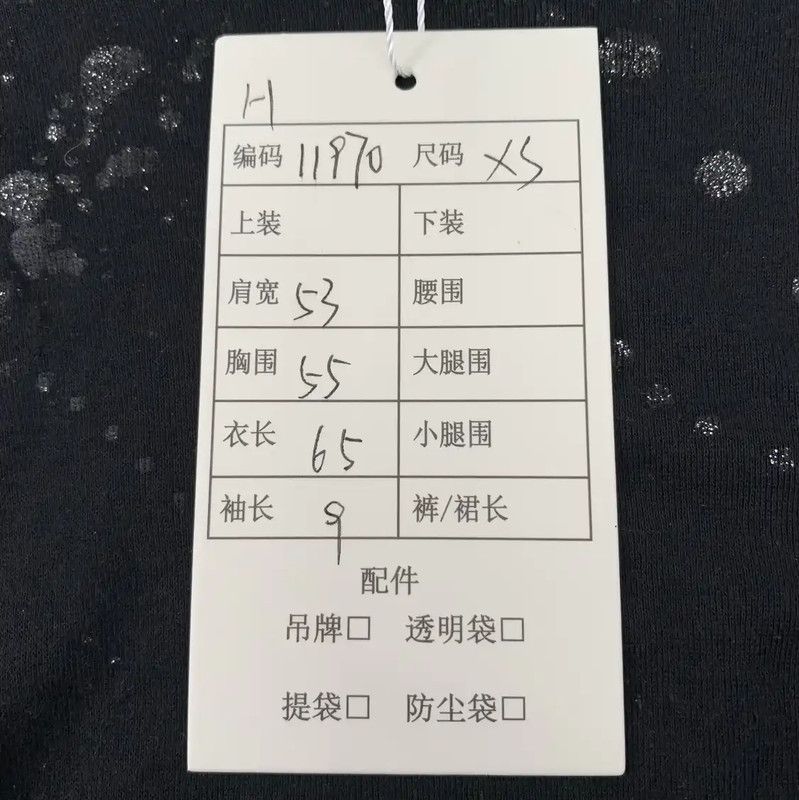 H
编码 11970 尺码 XS
上装 下装
肩宽 53 腰围
胸围 55 大腿围
衣长 65 小腿围
袖长 9 裤/裙长
配件
吊牌□ 透明袋□
提袋□ 防尘袋□